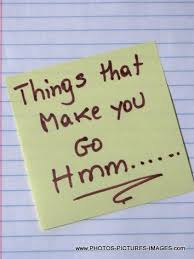 Things that
Make you
GO
Hmm......
www.PHOTOS-PICTURES-IMAGES.com